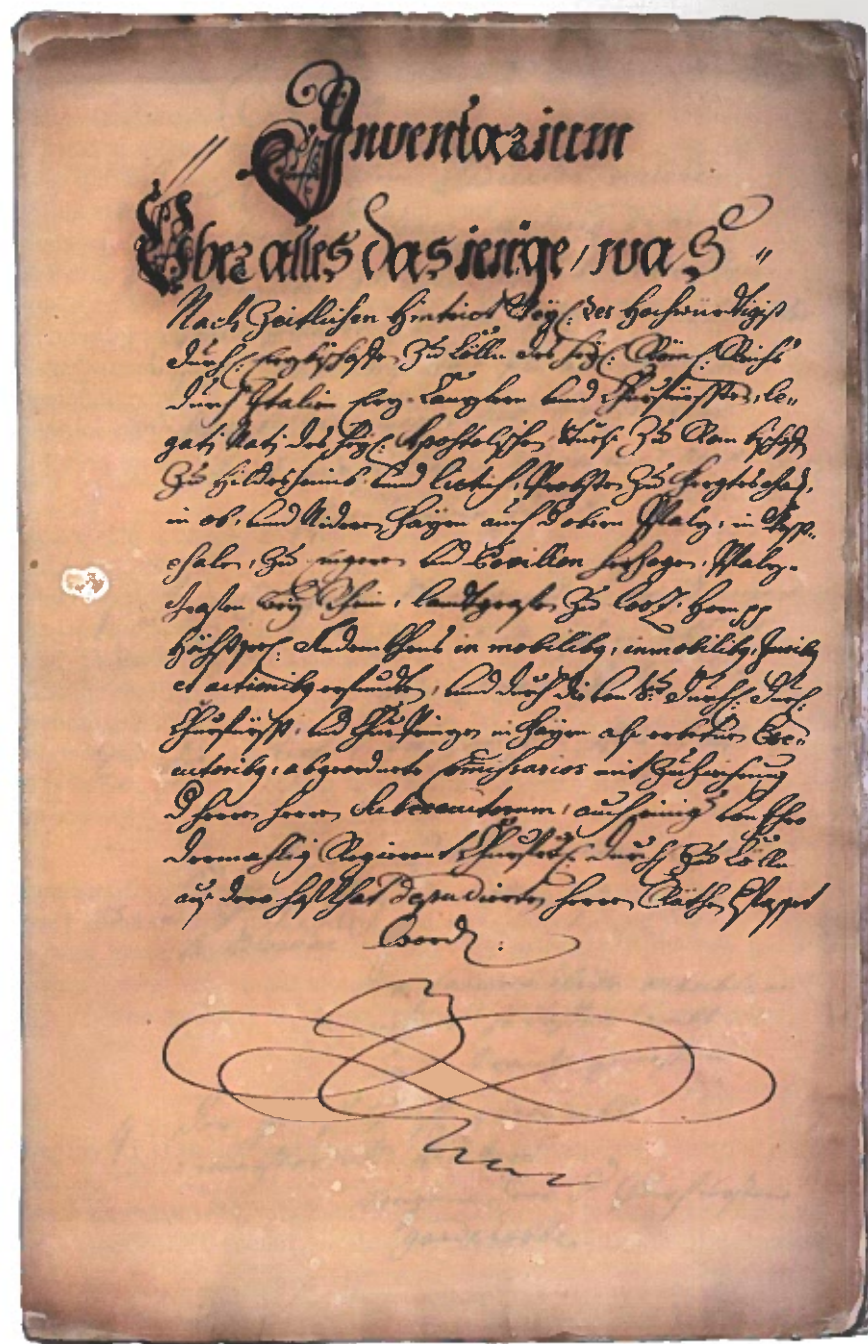 Inventarium
Über alles das jenige / was
Nach Zeitlichen Hintrit Weyl: des Hochwürdigist
Durchl: Erzbischoffen Zu Cölln des heyl: Röm: Reichs
durch Italien Erz-Canzlern und Churfürsten, le-
gati Nati des heyl: Apostolischen Stuhls Zu Rom bischoffen
Zu Hildesheimb und Lüttich, Probsten Zu Bergtesgad,
in ob: und Nidern Bayrn auch d obern Pfalz, in West-
phalen, Zu Engern und Bovillon herzogen, Pfalz-
grafen bey Rhein, landtgrafen Zu
in mobilibus, immobilibus, Juribus
et actionibus erfundten, und durch die von Sr: Durchl: Durchl:
Churfürst: und Churprinzen in Bayrn als erbettnen Exe-
cutoribus, abgeordnete Commissarios mit Zuziehung
d herrn herrn Subexecutorum, auch einig von Ihro
dermahlig Regierent Churfrtl: Durchl: Zu Cölln
aus dero deputierten herrn Räthen
Word: